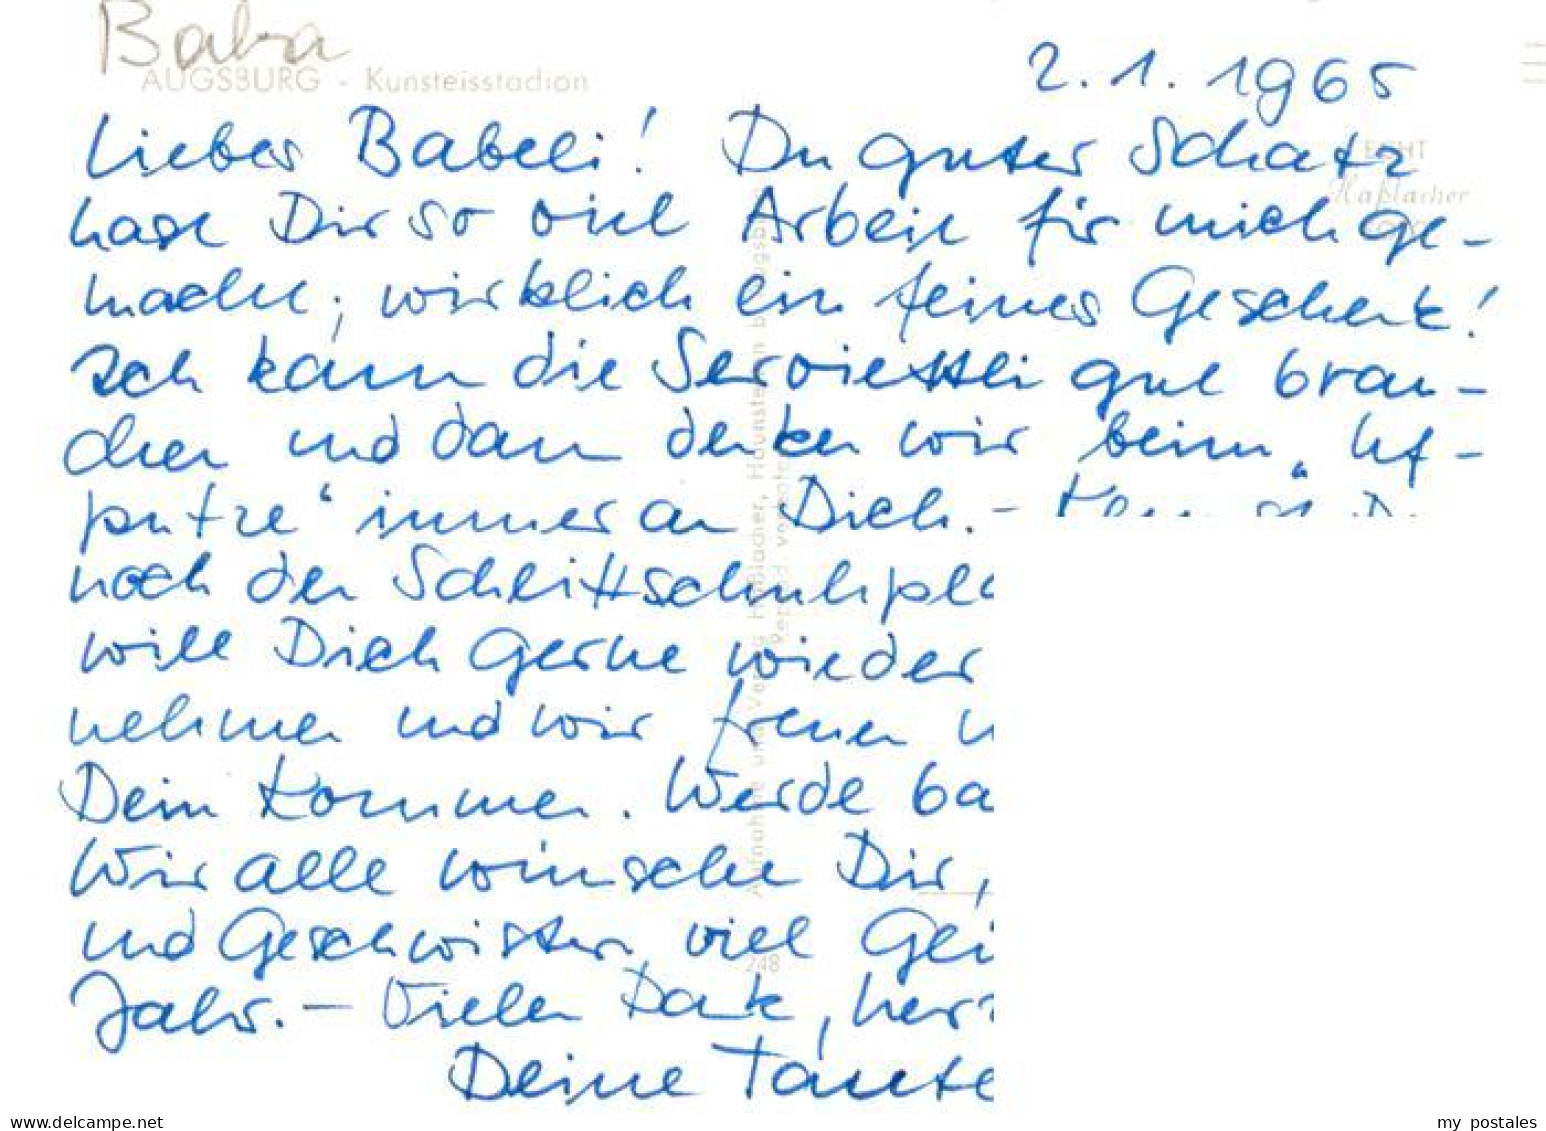 Baba
AUGSBURG - Kunsteisstadion
2. 1. 1965
Liebes Babeli! Du guter Schatz
hast Dir so viel Arbeit für mich ge-
macht; wirklich ein feines Geschenk!
Ich kann die Serviettli gut brau-
chen und dann denken wir beim „Uf-
putze“ immer an Dich. -
noch den Schlittschuhpl
will Dich gerne wieder
nehmen und wir freuen
Dein Kommen. Werde ba
Wir alle wünsche Dir,
und Geschwister viel
Jahr. - Vielen Dank, herz
Deine Tante
ECHT
Haßlacher
Aufnahme und Verlag Haßlacher, Haunstetten b. Augsburg
Reprod. verboten
248
www.delcampe.net
my postales